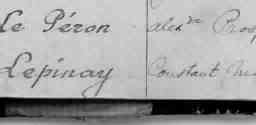 Le Péron alex dre Prosp
Lepinay Constant